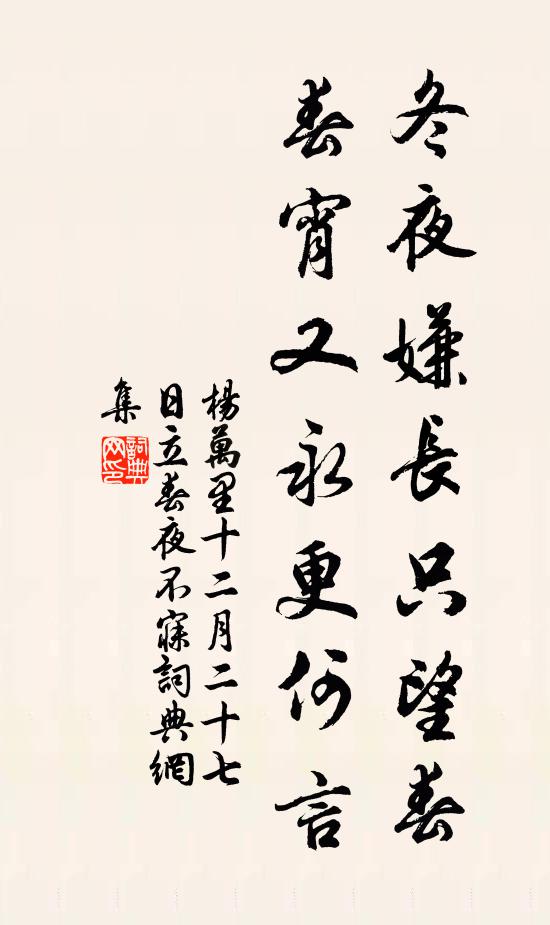 冬夜嫌長只望春
春宵又永更何言
楊萬里十二月二十七
日立春夜不寐詞典網
集
詞典
网印